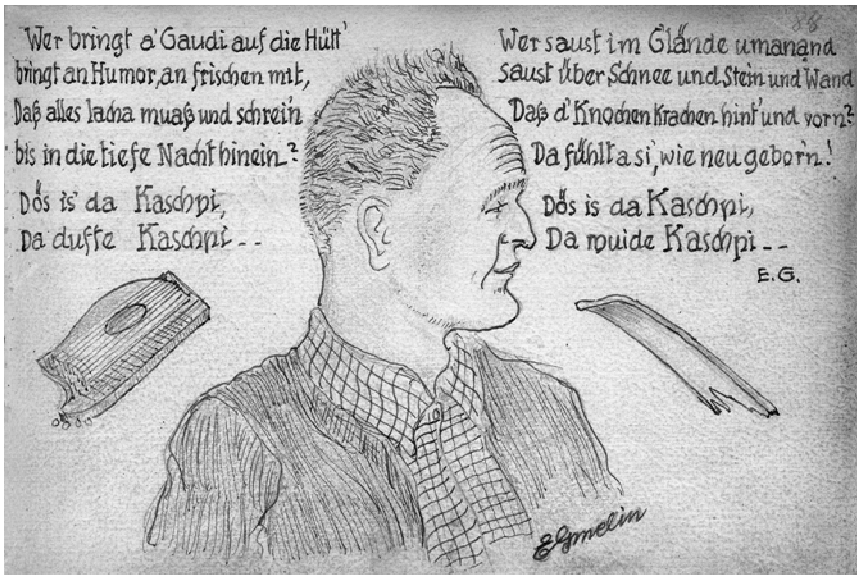 Wer bringt a' Gaudi auf die Hütt'
bringt an Humor, an frischen mit,
Daß alles lacha muaß und schrei'n
bis in die tiefe Nacht hinein?
Dös is' da Kaschpi,
Da dufte Kaschpi--
Wer saust im G'lände umanand
saust über Schnee und Stein und Wand
Daß d' Knochen krachen hint' und vorn?
Da fühlt a si', wie neu gebor'n!
Dös is da Kaschpi,
Da wuide Kaschpi--
E.G.
EGmelin
88